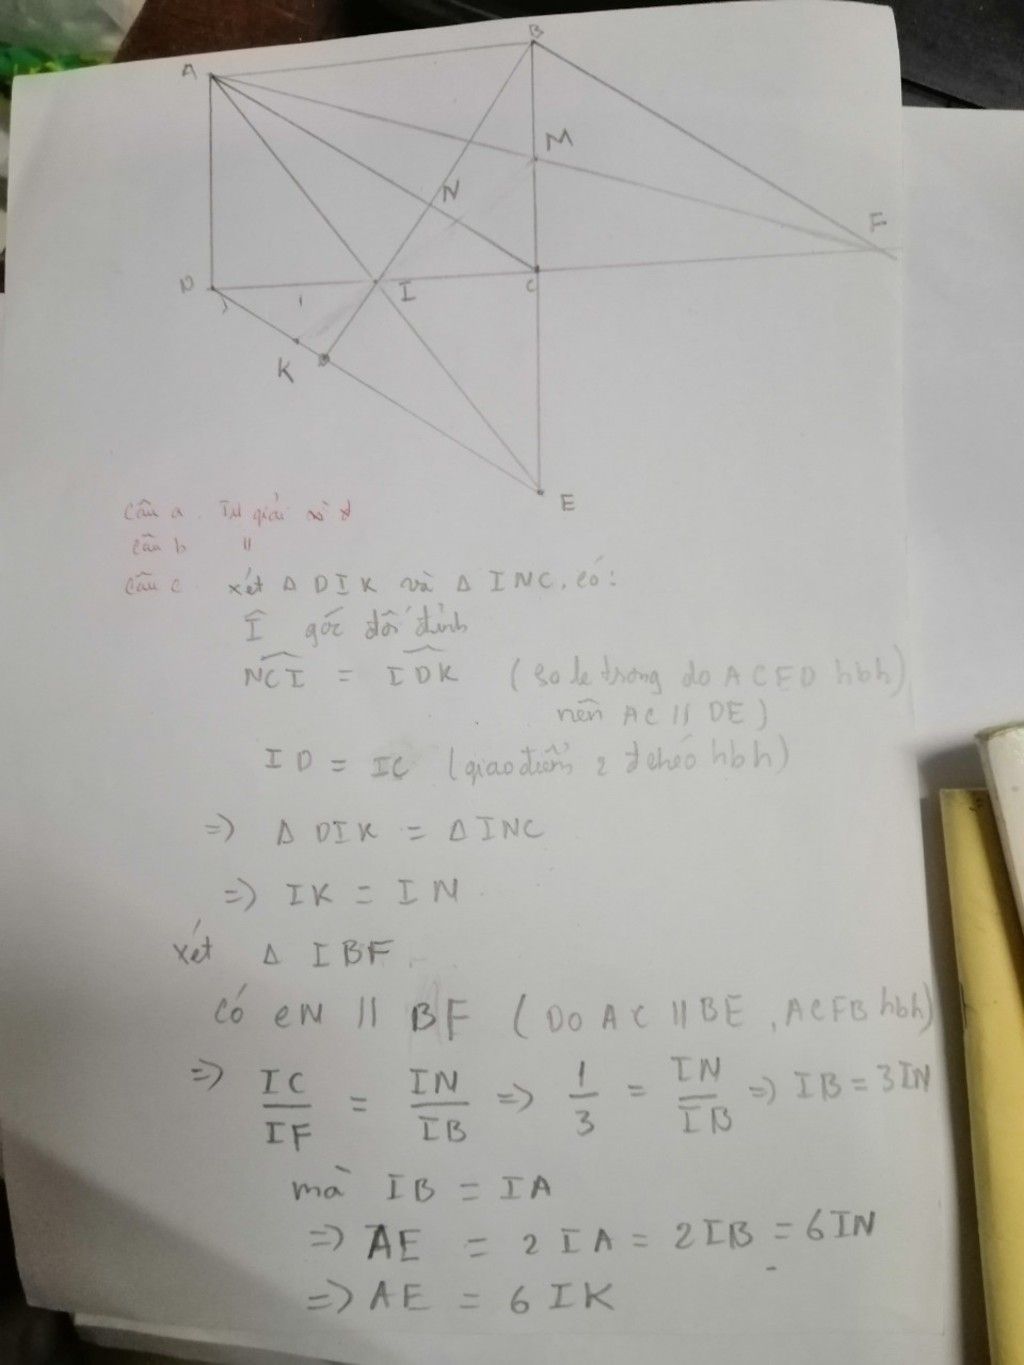 A
B
M
N
F
D
I
C
K
E
Câu a. Tự giải
Câu b "
Câu c. xét Δ DIK và Δ INC, có:
Î góc đối đỉnh
NCI = IDK (so le trong do ACED hbh)
nên AC // DE)
ID = IC (giao điểm 2 đchéo hbh)
=> Δ DIK = Δ INC
=> IK = IN
xét Δ IBF
Có CN // BF (Do AC // BE, ACFB hbh)
=> IC/IF = IN/IB => 1/3 = IN/IB => IB = 3IN
mà IB = IA
=> AE = 2IA = 2IB = 6IN
=> AE = 6IK